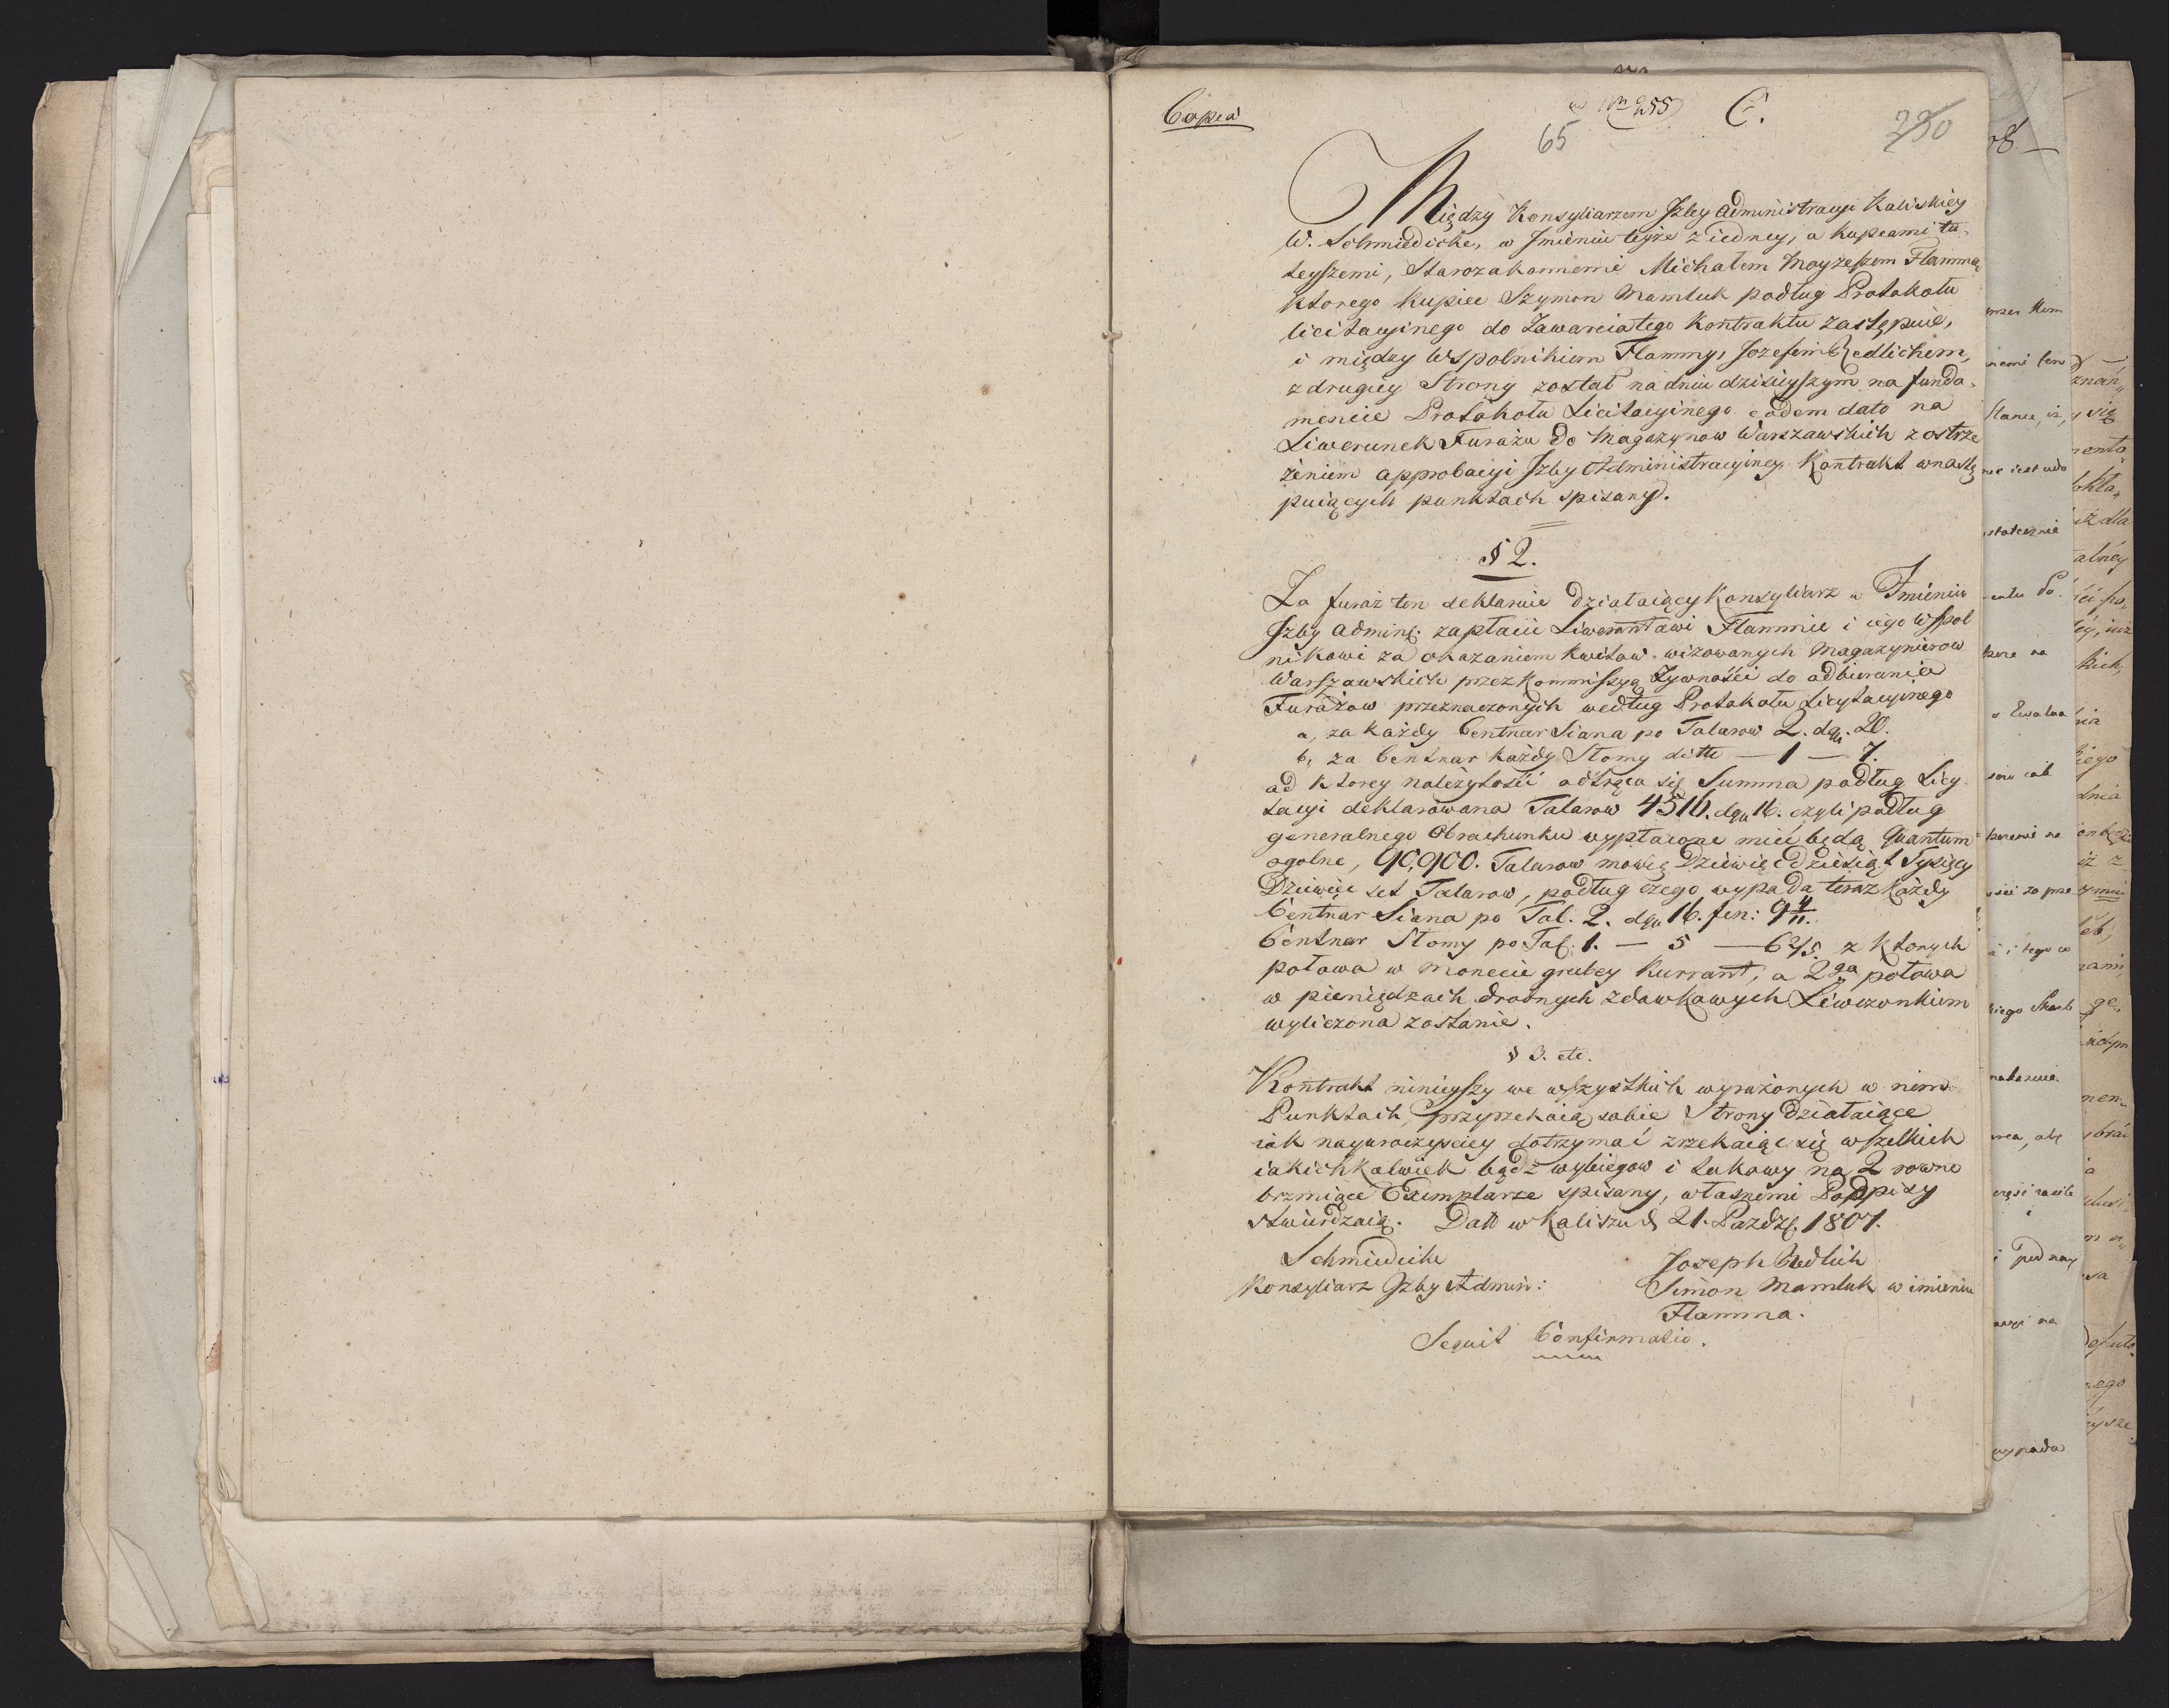 Copia
255
C.
65
230
Między Konsyliarzem Jzby Administracyi Kaliskiey
W. Schmiedicke, w Jmieniu teyże z iedney, a kupcami tu-
teyszemi, Starozakonnemi Michałem Moyżeszem Flamma,
ktorego kupiec Szymon Mamluk podług Protokołu
licitacyinego do Zawarcia tego Kontraktu zastępuie,
i między Wspolnikiem Flammy, Jozefem Redlichem,
z drugiey Strony został na dniu dzisieyszym na funda-
mencie Protokołu Licitacyinego eodem dato na
Liwerunek Furażu do Magazynow Warszawskich z ostrze
żeniem approbacyi Jzby Administracyiney Kontrakt w nastę
puiących punktach spisany.
§ 2.
Za furaż ten deklaruie Działaiący Konsyliarz w Jmieniu
Jzby Admins. zapłacić Liwerantowi Flammie i iego Wspol
nikowi za okazaniem kwitow wizowanych Magazynierow
Warszawskich przez Kommissyą Żywności do odbierania
Furażow przeznaczonych według Protokołu Licytacyinego
a, za każdy Centnar Siana po Talarow 2. dgr. 20.
b, za Centnar każdy Słomy ditto — 1 — 7.
od ktorey należytości odtrąca się Summa podług Licy-
tacyi deklarowana Talarow 4516. dgr 16. czyli podług
generalnego Obrachunku wypłacone mieć będą Quantum
ogolne, 90,900. Talarow mowię Dziewięćdziesiąt Tysięcy
Dziewięć set Talarow, podług czego wypada teraz każdy
Centnar Siana po Tal. 2. dgr 16. fen: 9 4/11.
Centnar Słomy po Tal. 1. — 5 — 6 2/5. z ktorych
połowa w Monecie grubey Kurrant, a 2ga połowa
w pieniędzach drobnych zdawkowych
wyliczona zostanie.
§ 3. etc.
Kontrakt ninieyszy we wszystkich wyrażonych w nim
Punktach, przyrzekaią sobie Strony Działaiące
iak nayuroczyściey dotrzymać zrzekaiąc się wszelkich
iakichkolwiek bądź wybiegow i takowy na 2 rowno
brzmiące Exemplarze spisany, własnemi Podpisy
stwierdzaią. Datt w Kaliszu d. 21. Pazdz. 1807.
Schmiedicke
Joseph Redlich
Konsyliarz Jzby Admin:
Simon Mamluk w imieniu
Flamma.
Sequit Confirmatio.